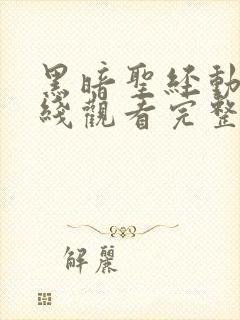 黑暗聖经動
綫觀看完整
解麗